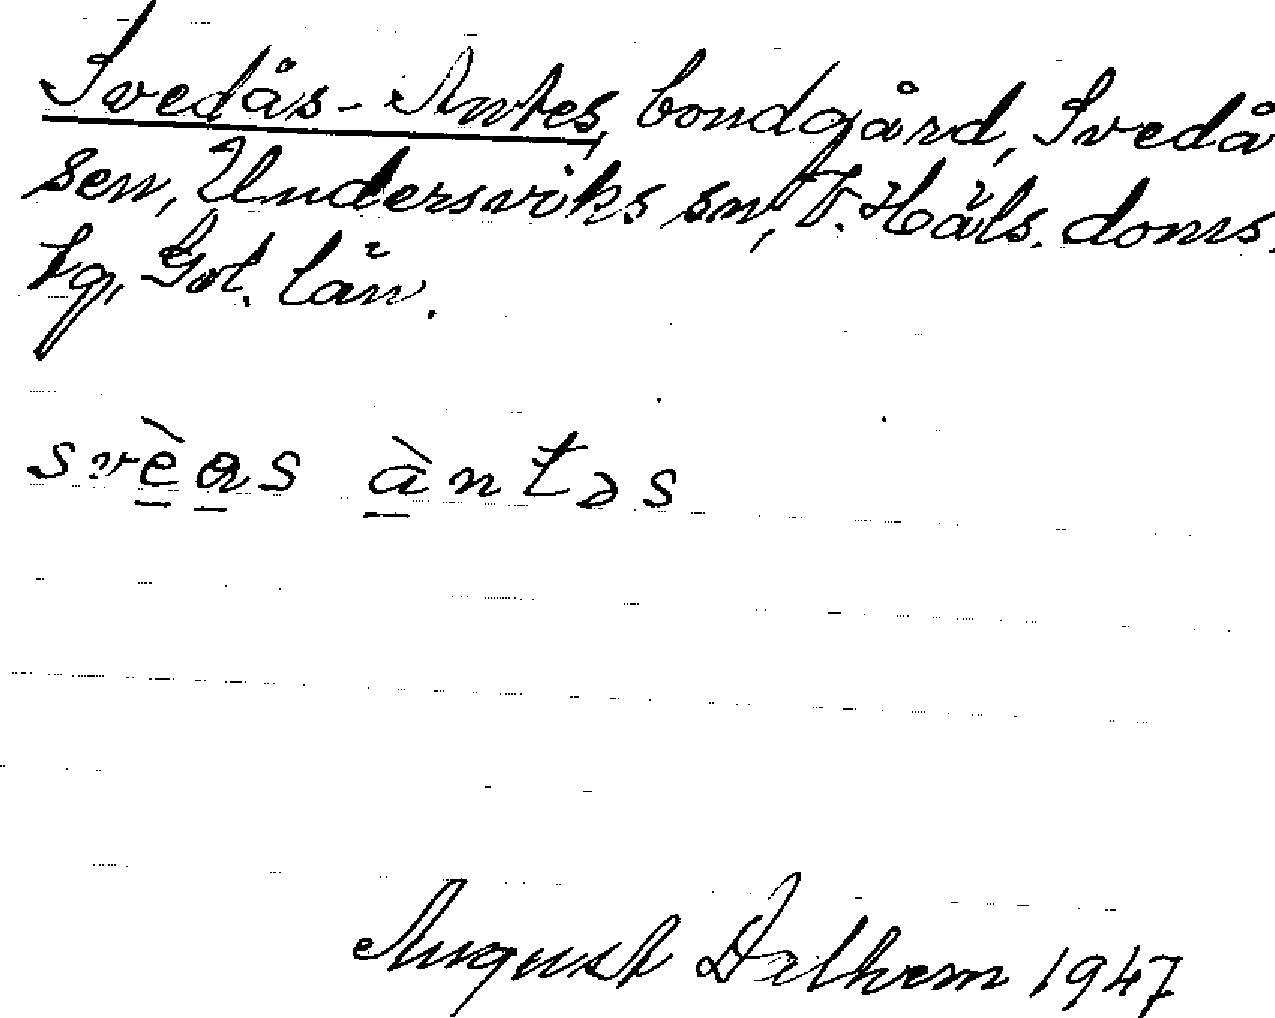 Svedås-Antes, bondgård, Svedå
sen, Undersviks sn, V. Häls. doms.
tg, Got. län.
svèas àntəs
August Dalhem 1947